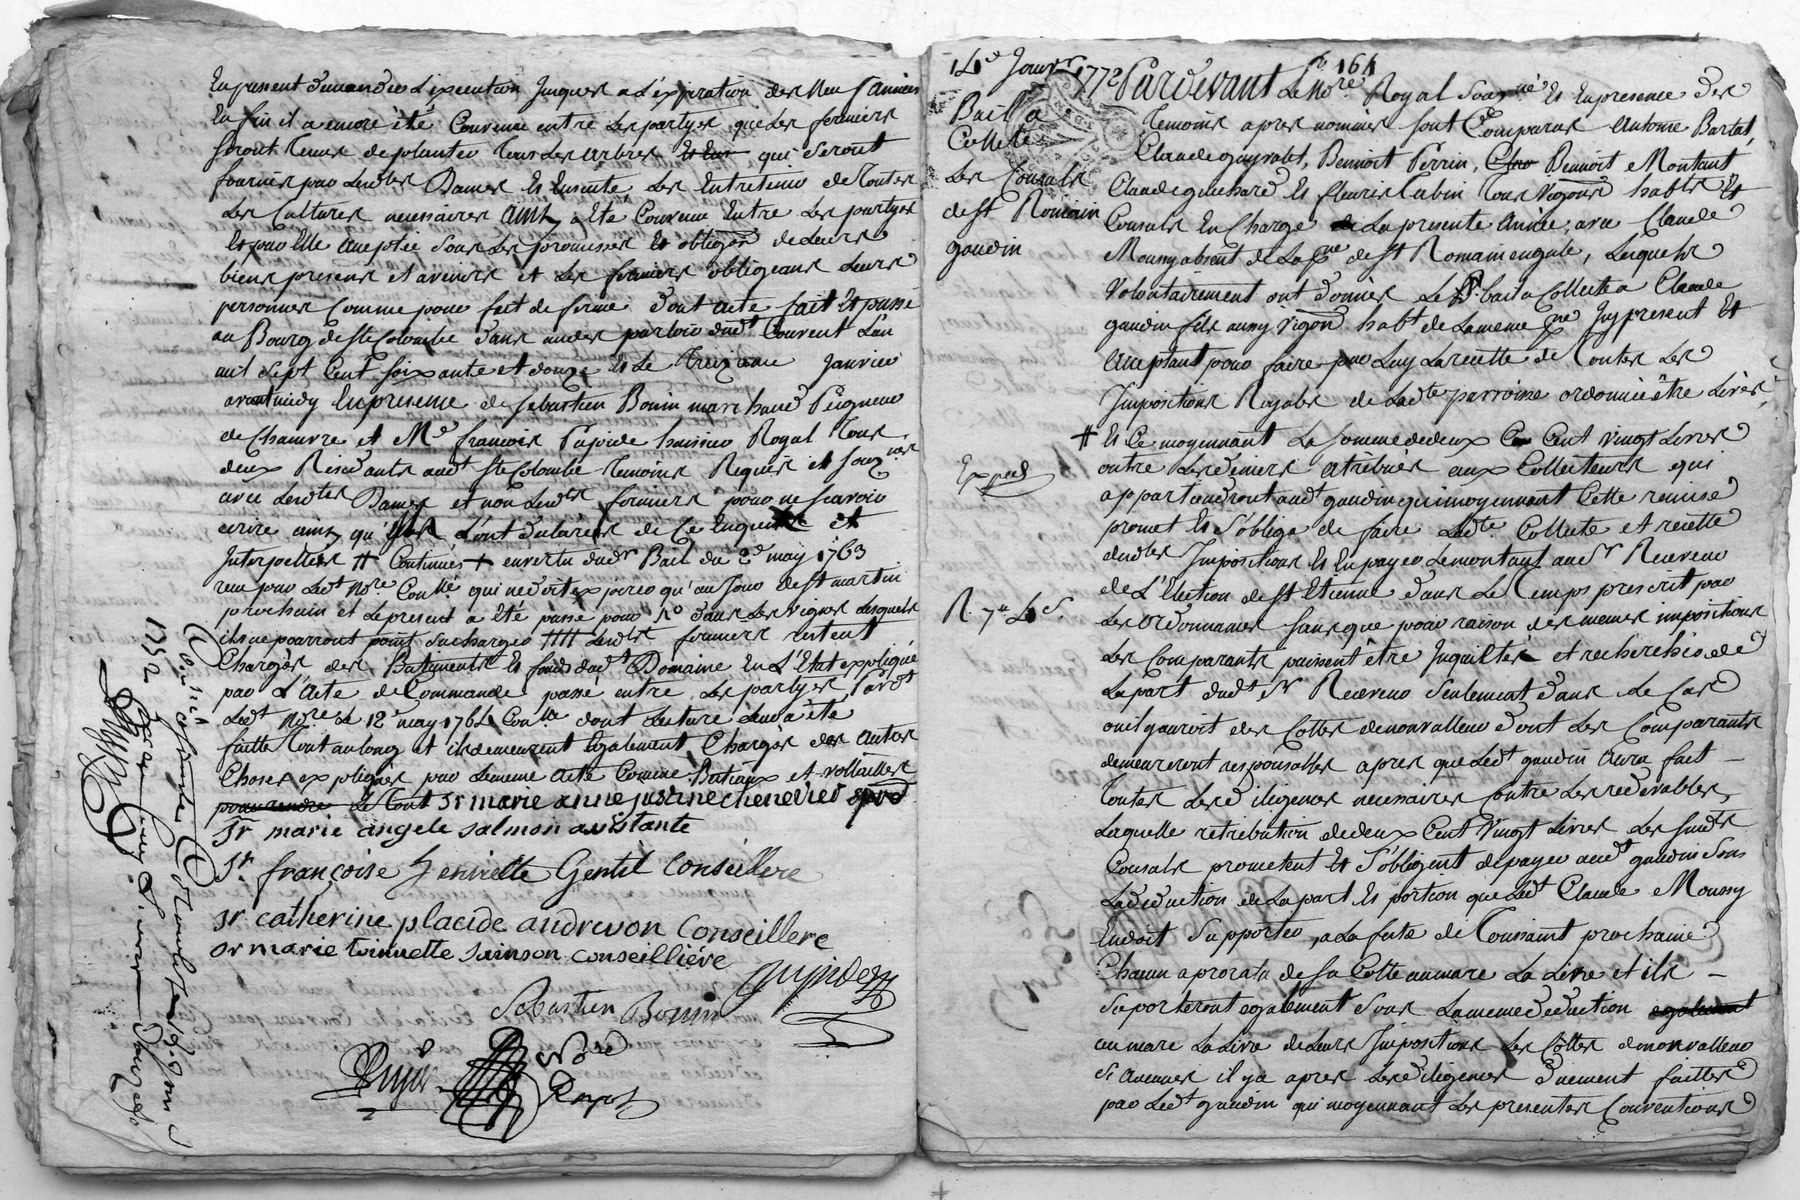 En present demandées L'execution Jusques a L'expiration des Neuf Années
En fin il a encore été Convenu entre Les partyes que Les fermiers
seront Tenus de planter Tous Les Arbres qui seront
fournis par Lesdtes Dames Et Ensuite Les Entretenir de Toutes
Les Cultures necessaires Ainsy a été Convenu Entre Les partyes
Et par Elle acceptée sous Les promesses Et obligaõn de Leurs
biens presens et avenirs et Les fermiers obligeans Leurs
personnes Comme pour fait de ferme dont acte fait Et passé
au Bourg de Ste Colombe dans un des parloir dudt Couvent L'an
mil sept Cent soixante et douze Et Le Treizieme Janvier
avant midy En presence de sebastien Bonin marchand Peigneur
de Chanvre et Me francois huissier Royal Tous
deux Residants audt Ste Colombe Temoins Requis et sousnés
avec Lesdtes Dames et non Lesdts fermiers pour ne scavoir
ecrire ainsy qu'ils L'ont declarés de Ce Enquis et
Interpellés # Continués + en vertu dudt Bail du 2e may 1763
recu par Ledt Nore Conllé qui ne doit expirer qu'au Jour de st martin
prochain et Le present a été passé pour 1° dans Les vignes desquels
ils ne pourront point surcharger #### Lesdts fermiers restent
Chargés des Batiments Et fonds dudt Domaine En L'Etat expliqué
par L'Acte de Commande passé entre Les partyes Pardt
Ledt Nore Le 12e may 1764 Conllé dont Lecture Leur a été
faitte Tout au long et ils demeurent Egalement Chargés des autres
Choses expliqués par Lememe acte Comme Batiaux et vollailles
pour rendre Le Tout Sr marie anne justine chenevier
Sr marie angele salmon assistante
Sr françoise henriette Gentil Conseillere
sr catherine placide andrevon Conseillere
sr marie toinnette sainson conseilliere
Sebastien Bonin
Nore
14e Janvr 1772
161
Bail a
Collete
Les Consuls
de st Romain
gaudin
Pardevant Le Nore Royal sousné Et En presence des
Temoins apres nommés sont Comparus Antoine Bartat,
Claude guyvolet, Benoit Perrin, Benoit Montant
Claude guichard Et fleuris Cubin Tous vigons habts Et
Consuls En Charge La presente Année, avec Claude
Moussy absent de La psse de st Romain engale, Lesquels
volontairement ont donnés Le Pt bail a Collecte a Claude
gaudin fils aussy vigon habt de Lameme psse Icy present Et
acceptant pour faire par Luy La recette de Toutes Les
Impositions Royales de Ladte parroisse ordonnée être Livés
# Et Ce moyennant La somme de deux Cent vingt Livres
outre Les deniers atribués aux Collecteurs qui
appartiendront audt gaudin qui moyennant Cette remise
promet Et s'oblige de faire Ladte Collecte et recette
desdtes Impositions Et En payer Le montant au sr Receveur
de L'Election de st Etienne dans Le Temps prescrit par
Les ordonnances sans que pour raison des memes impositions
Les Comparants puissent être Inquiettés et recherchés de
La part dudt sr Receveur seulement dans Le Cas
ou il y auroit des Cottes de nonvalleur dont Les Comparants
demeureront responsables apres que Ledt gaudin Aura fait
Toutes Les diligences necessaires Contre Les redevables,
Laquelle retribution de deux Cent Vingt Livres Les susdts
Consuls promettent Et s'obligent de payer audt gaudin sous
La deduction de La part Et portion que Ledt Claude Moussy
En doit supporter, a La feste de Toussaint prochaine
Chacun a prorata de sa Cotte au marc La Livre et ils
suporteront egalement sous Lameme deduction
au marc La Livre de Leurs Impositions Les Cottes de nonvalleur
si aucunes il y a apres Les diligences duement faittes
par Ledt gaudin qui moyennant Les presentes Conventions
Exped
R. 7# 4s.